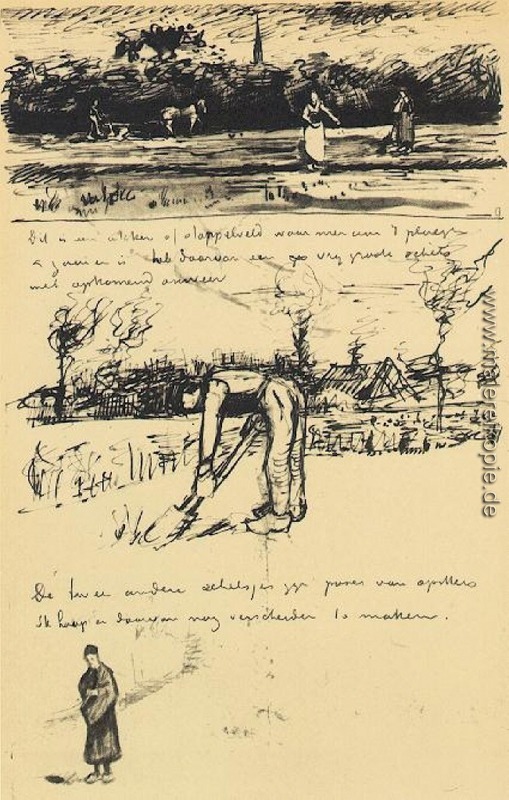 Dit is een akker of stoppelveld waar men aan 't ploegen
& zaaien is heb daarvan een vrij groote schets
met opkomend onweer
De twee andere schetsjes zijn poses van spitters
ik hoop er daarvan nog verscheiden te maken.
www.malereikopie.de